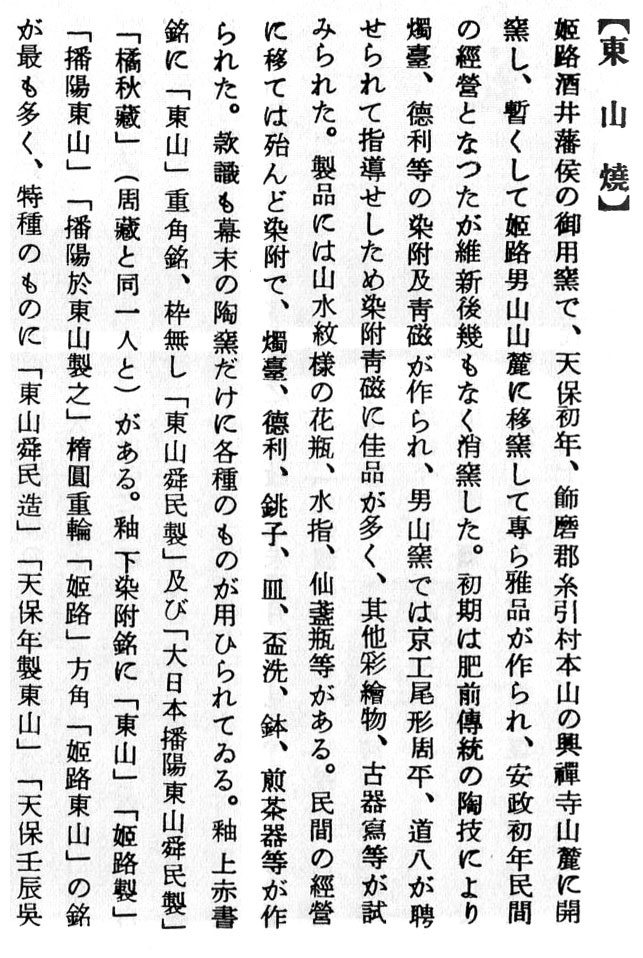 【東山燒】
姬路酒井藩侯の御用窯で、天保初年、飾磨郡糸引村本山の興禪寺山麓に開
窯し、暫くして姬路男山山麓に移窯して專ら雅品が作られ、安政初年民間
の經營となつたが維新後幾もなく消窯した。初期は肥前傳統の陶技により
燭臺、德利等の染附及靑磁が作られ、男山窯では京工尾形周平、道八が聘
せられて指導せしため染附靑磁に佳品が多く、其他彩繪物、古器寫等が試
みられた。製品には山水紋樣の花瓶、水指、仙盞瓶等がある。民間の經營
に移ては殆んど染附で、燭臺、德利、銚子、皿、盃洗、鉢、煎茶器等が作
られた。款識も幕末の陶窯だけに各種のものが用ひられてゐる。釉上赤書
銘に「東山」重角銘、枠無し「東山舜民製」及び「大日本播陽東山舜民製」
「橘秋藏」（周藏と同一人と）がある。釉下染附銘に「東山」「姬路製」
「播陽東山」「播陽於東山製之」楕圓重輪「姬路」方角「姬路東山」の銘
が最も多く、特種のものに「東山舜民造」「天保年製東山」「天保壬辰吳